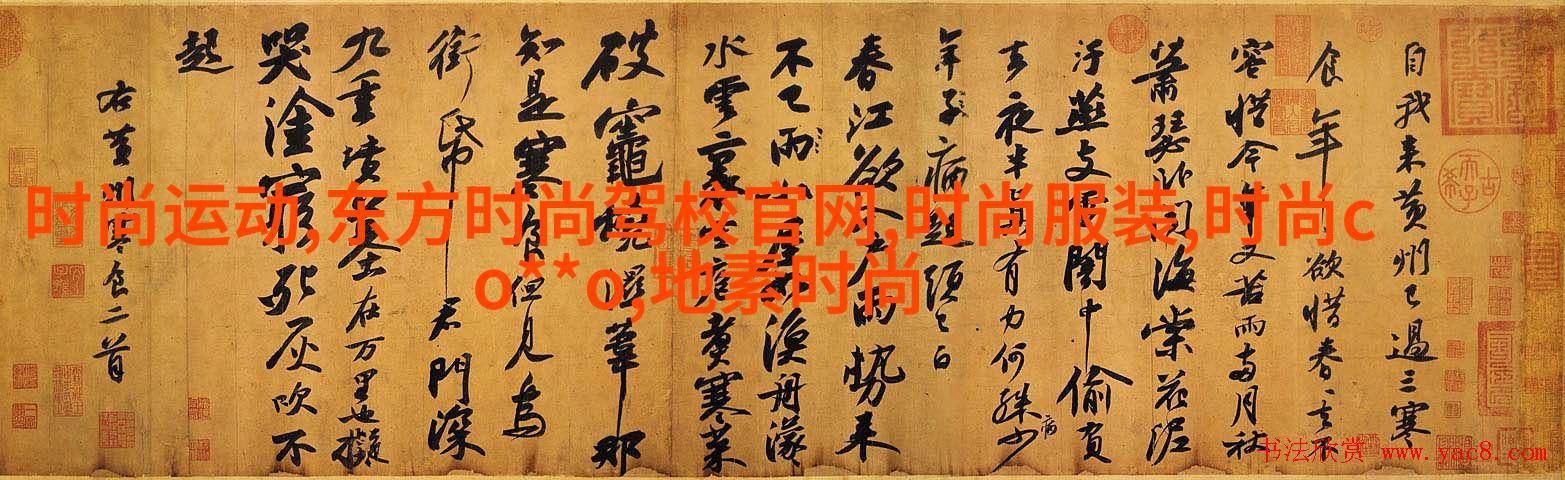 自我来黄州已過三寒
食年〃欲惜春〃去不
容惜今年又苦雨兩月秋
蕭瑟卧聞海棠花泥
汙燕支雪闇中偷負
去夜半真有力何殊少
病
年子病起頭已白
春江欲入户雨勢来
不已雨小屋如漁舟濛
水雲裏空庖煮寒菜
破竈燒濕葦那
知是寒食但見烏
銜帋君門深
九重墳墓在万里也擬
哭塗窮死灰吹不
起
右黄州寒食二首
时尚运动,东方时尚驾校官网,时尚服装,时尚c
o**o,地素时尚
书法欣赏 www.yac8.com